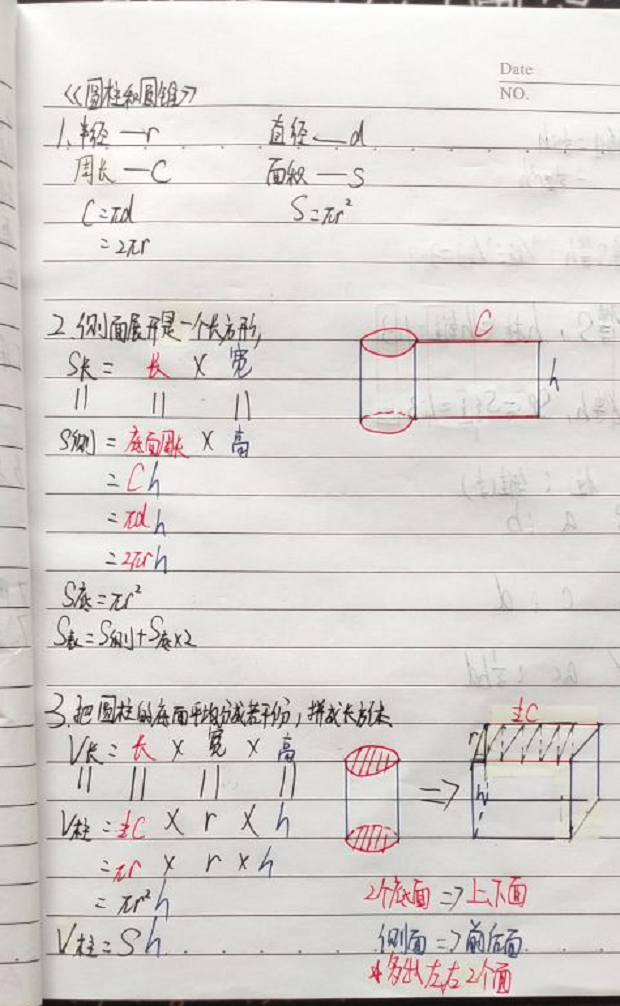 Date
NO.
《圆柱和圆锥》
1、半径—r 直径—d
周长—C 面积—S
C=πd S=πr²
=2πr
2、侧面展开是一个长方形,
C
S长 = 长 × 宽
h
|| || ||
S侧 = 底面周长 × 高
= Ch
= πdh
= 2πrh
S底=πr²
S表=S侧+S底×2
3、把圆柱的底面平均分成若干份,拼成长方体
½C
V长 = 长 × 宽 × 高
r
|| || || ||
=>
h
V柱 = ½C × r × h
= πr × r × h
= πr²h
2个底面 => 上下面
V柱 = Sh
侧面 => 前后面
*多出左右2个面